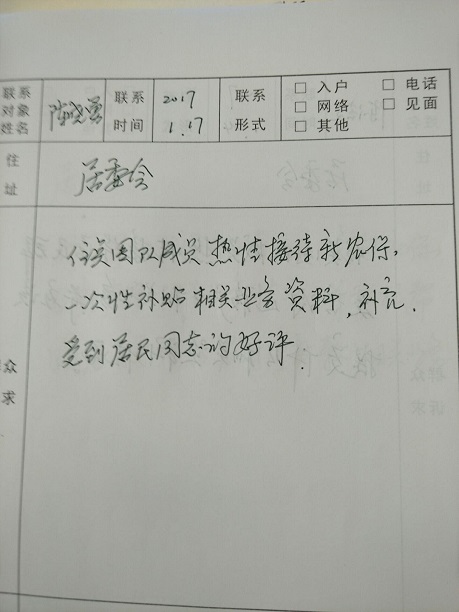 联系 联系 2017 联系 □ 入户 □ 电话
对象 □ 网络 □ 见面
姓名 时间 1.17 形式 □ 其他
住 居委会
址
团队成员热情接待新农保,
一次性补贴相关业务资料,补充.
受到居民同志的好评.
众
求